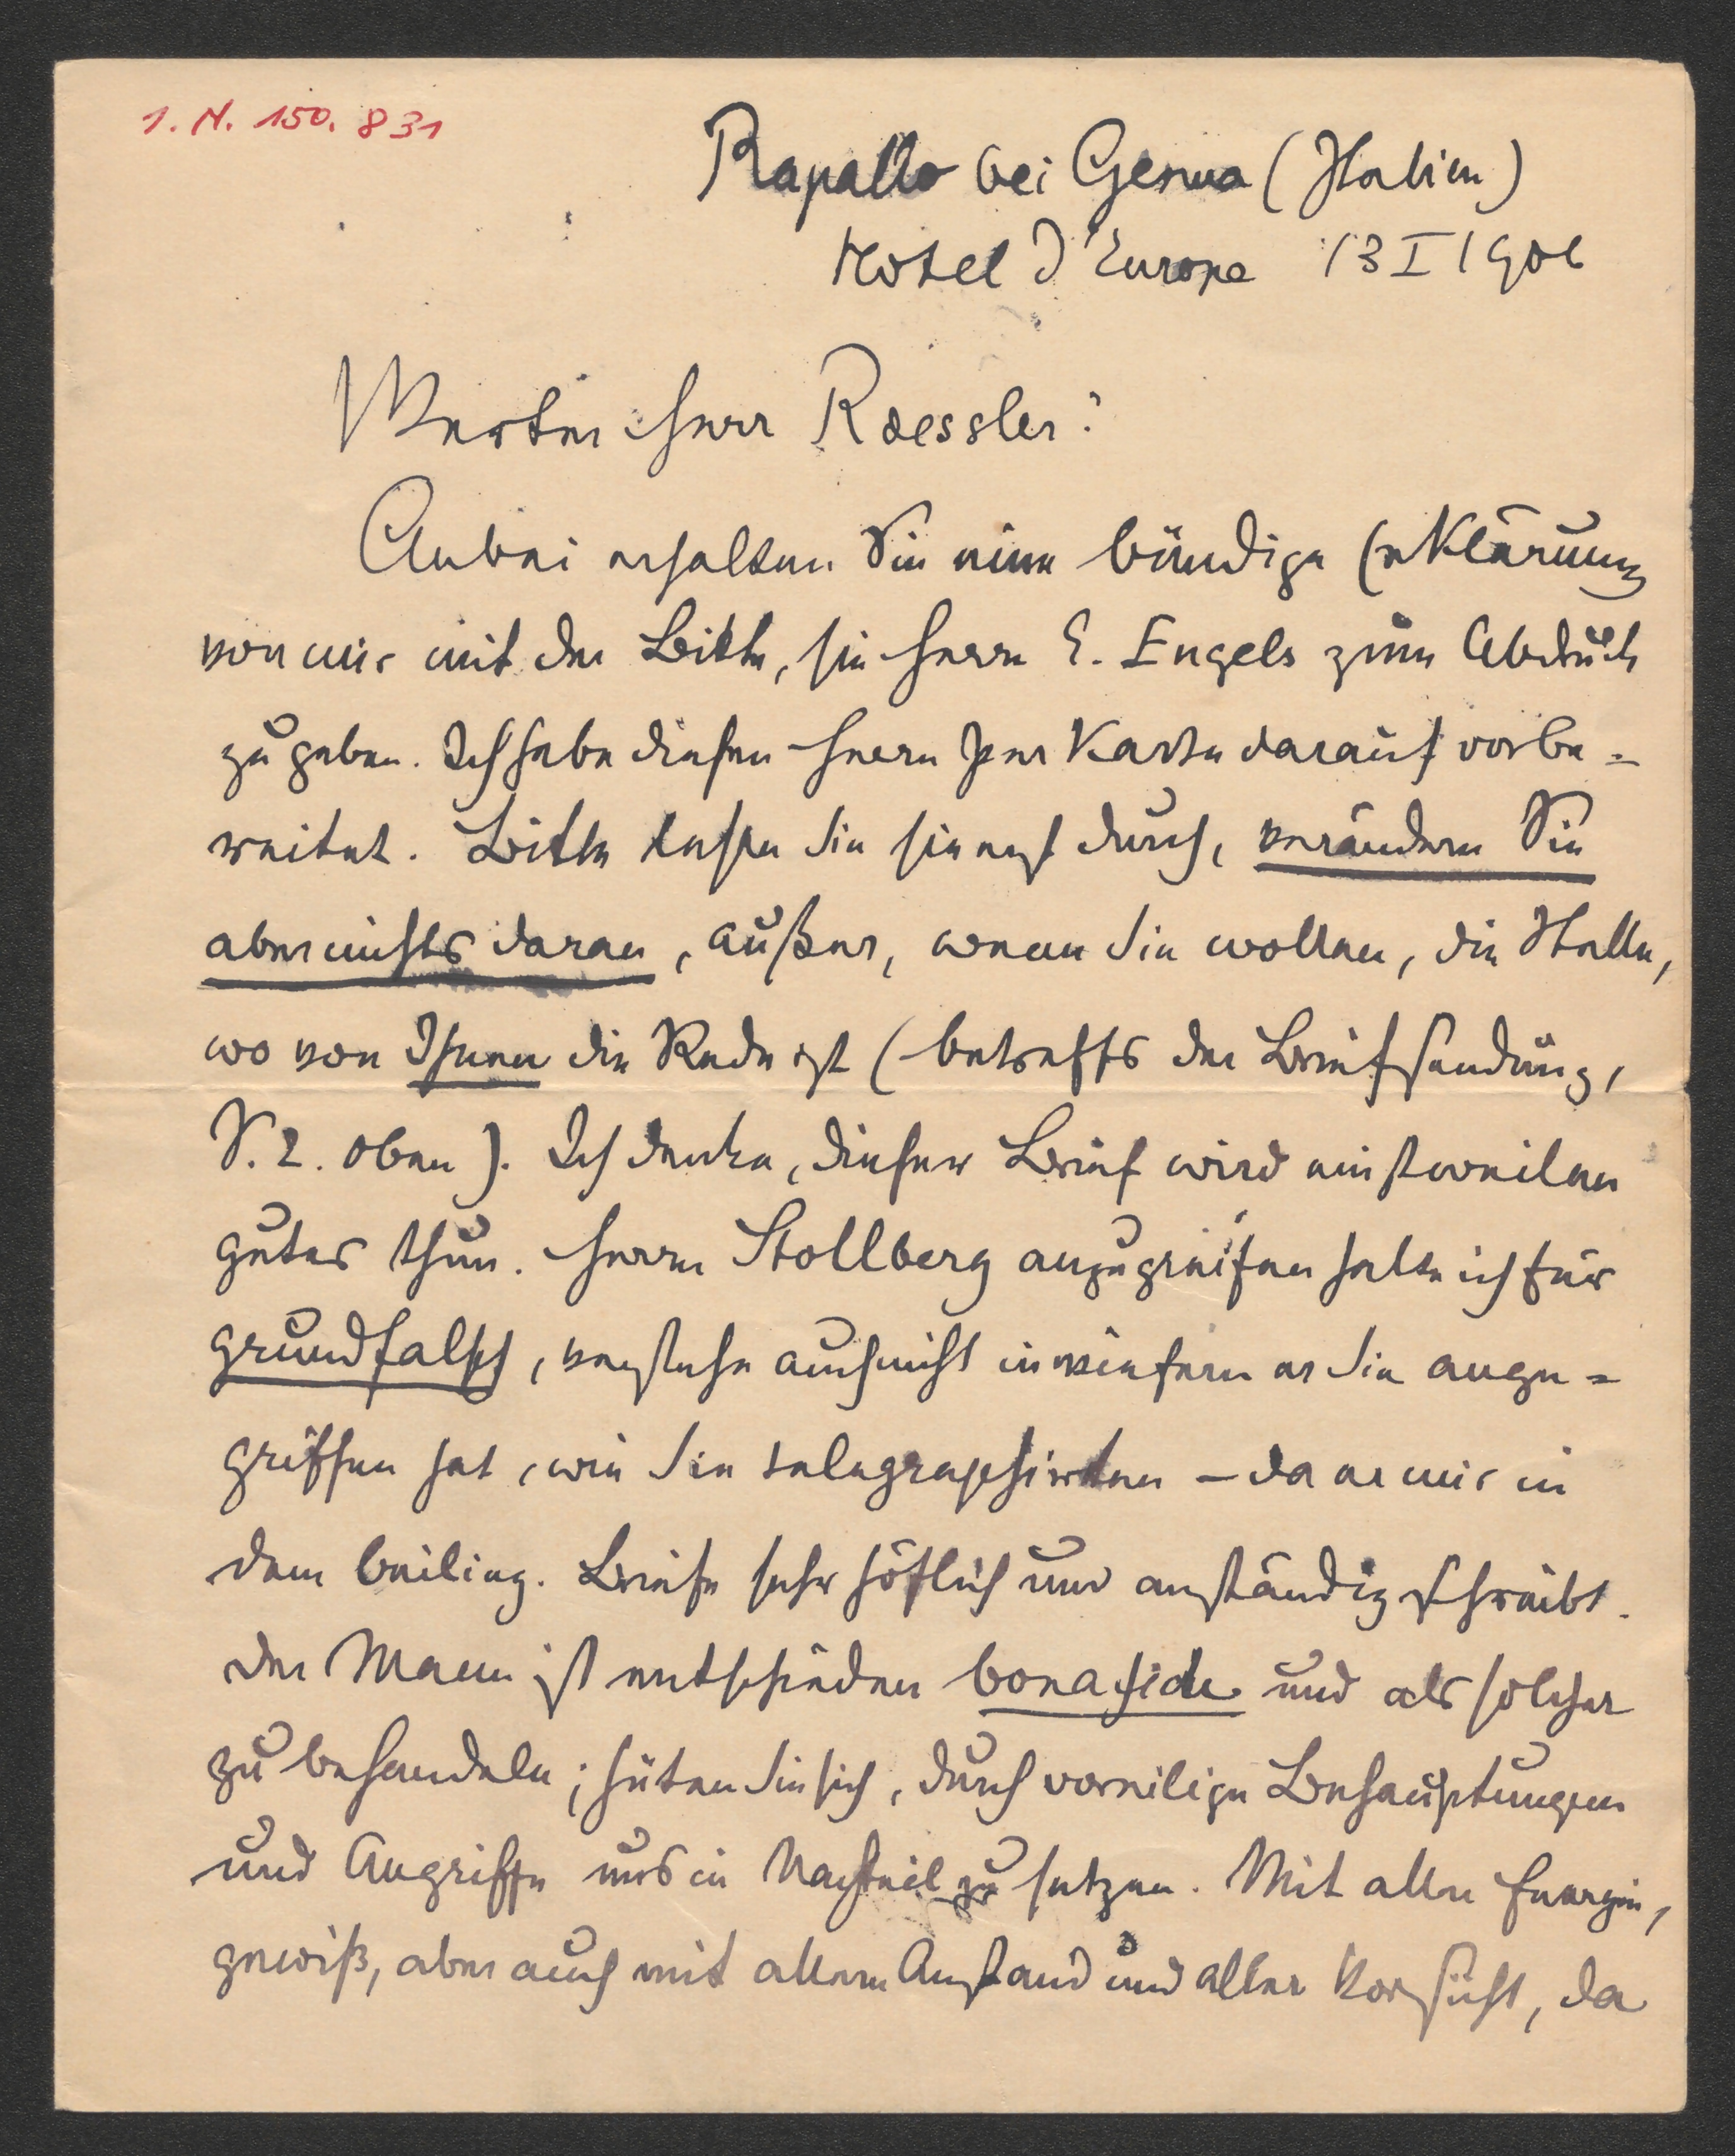 1. N. 150. 831
Rapallo bei Genua (Italien)
Hotel d'Europe 13 I 1906
Werter Herr Roessler!
Anbei erhalten Sie eine bündige Erklärung
von mir mit der Bitte, sie Herrn E. Engels zum Abdruck
zu geben. Ich habe diesen Herrn per Karte darauf vorbe=
reitet. Bitte lesen Sie sie erst durch, verändern Sie
aber nichts daran, außer, wenn Sie wollen, die Stelle,
wo von Ihnen die Rede ist (betreffs der Briefsendung,
S. 2. oben). Ich denke, dieser Brief wird einstweilen
gutes thun. Herrn Stollberg anzugreifen halte ich für
grundfalsch, verstehe auch nicht inwiefern er Sie ange=
griffen hat, wie Sie telegraphirten – da er mir in
dem beilieg. Briefe sehr höflich und anständig schreibt.
Der Mann ist entschieden bona fide und als solcher
zu behandeln; hüten Sie sich, durch voreilige Behauptungen
und Angriffe uns in Nachteil zu setzen. Mit aller Energie,
gewiß, aber auch mit allem Anstand und aller Vorsicht, da